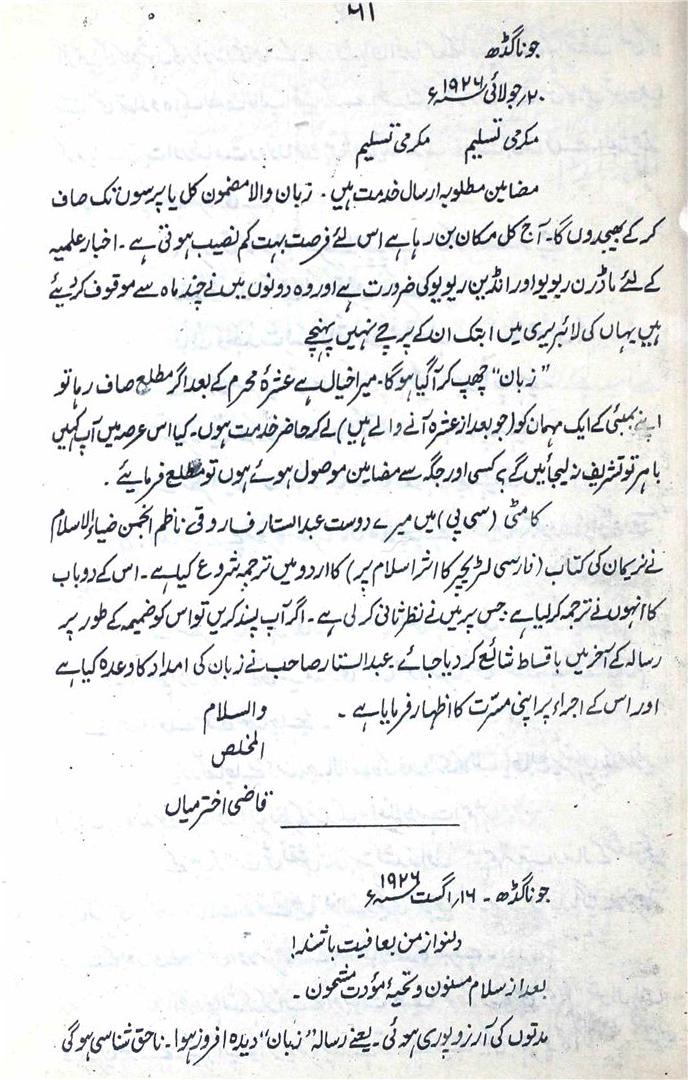 ۲۱
جوناگڈھ
۲۰؍جولائی ۱۹۲۶ء
مکرمی تسلیم مکرمی تسلیم
مضامین مطلوبہ ارسال خدمت ہیں۔ زبان والا مضمون کل یا پرسوں تک صاف
کر کے بھیجدوں گا۔ آج کل مکان بن رہا ہے اس لئے فرصت بہت کم نصیب ہوتی ہے۔ اخبار علمیہ
کے لئے ماڈرن ریویو اور انڈین ریویو کی ضرورت ہے اور وہ دونوں میں نے چند ماہ سے موقوف کر دیئے
ہیں یہاں کی لائبریری میں ابتک ان کے پرچے نہیں پہنچے
"زبان" چھپ کر آگیا ہوگا۔ میرا خیال ہے عشرۂ محرم کے بعد اگر مطلع صاف رہا تو
اپنے بمبئی کے ایک مہمان کو (جو بعد از عشرہ آنے والے ہیں) لے کر حاضر خدمت ہوں۔ کیا اس عرصہ میں آپ کہیں
باہر تو تشریف نہ لیجائیں گے؟ کسی اور جگہ سے مضامین موصول ہوئے ہوں تو مطلع فرمایئے۔
کامٹی (سی پی) میں میرے دوست عبدالستار فاروقی ناظم انجمن ضیاء الاسلام
نے نریمان کی کتاب (فارسی لٹریچر کا اثر اسلام پر) کا اردو میں ترجمہ شروع کیا ہے۔ اس کے دو باب
کا انہوں نے ترجمہ کر لیا ہے جس پر میں نے نظر ثانی کر لی ہے۔ اگر آپ پسند کریں تو اس کو ضمیمہ کے طور پر
رسالہ کے آخر میں باقساط شائع کر دیا جائے۔ عبدالستار صاحب نے زبان کی امداد کا وعدہ کیا ہے
اور اس کے اجراء پر اپنی مسرت کا اظہار فرمایا ہے۔ والسلام
المخلص
قاضی اختر میاں
جوناگڈھ۔ ۱۶؍اگست ۱۹۲۶ء
دلنواز من بعافیت باشند!
بعد از سلام مسنون و تحیۂ مؤدت مشحون۔
مدتوں کی آرزو پوری ہوئی۔ یعنے رسالہ "زبان" دیدہ افروز ہوا۔ ناحق شناسی ہوگی